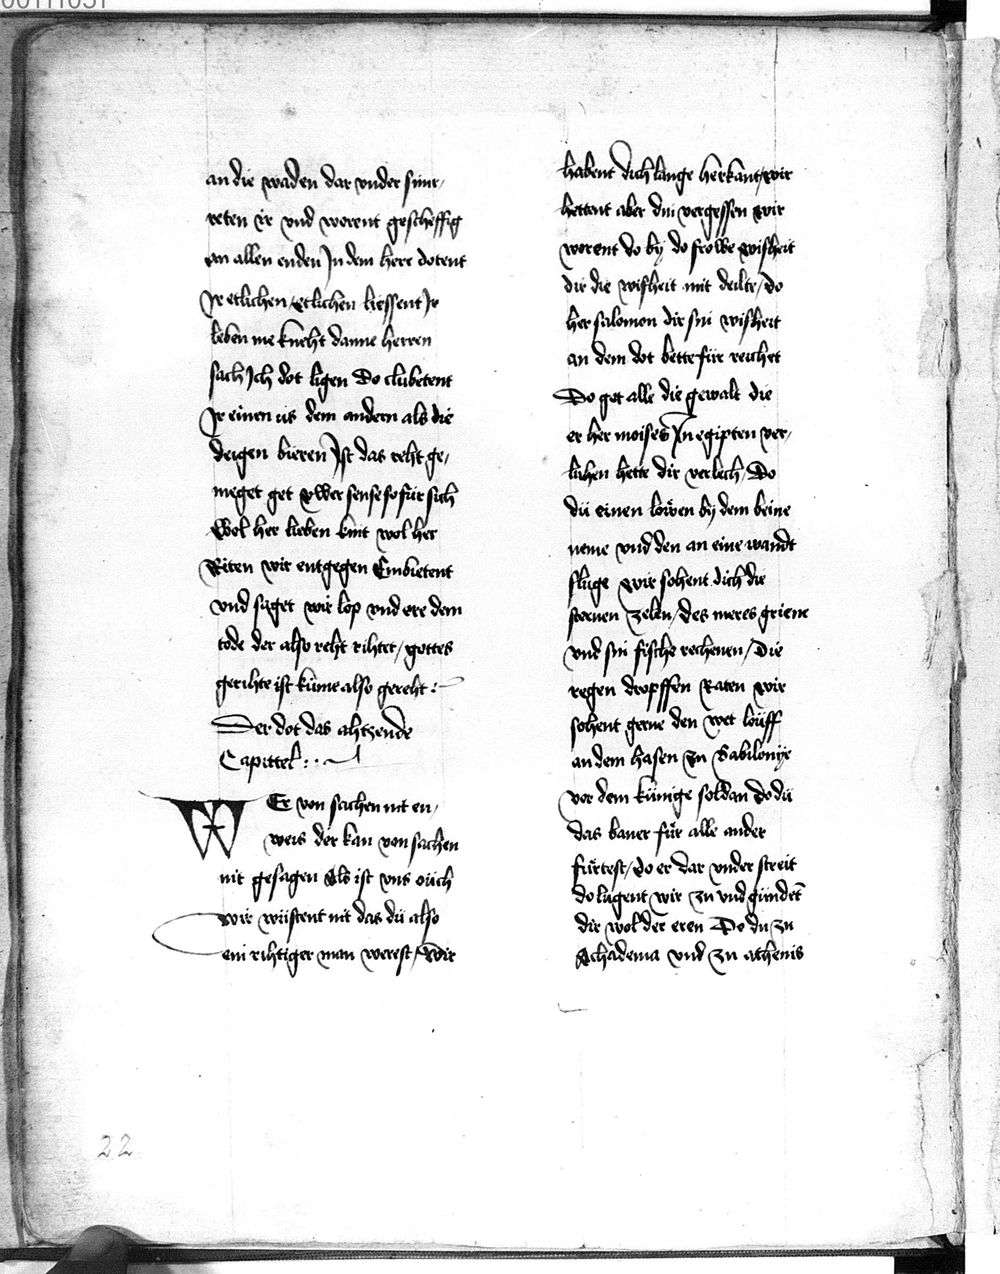 an die waden dar vnder snur/
reten ir vnd worent gescheffig
an allen enden In dem here dotent
Ir etlichen / etlichen liessent Ir
leben me kneht danne herren
sach Ich dot ligen Do clubetent
Ir einen us dem andern als die
deigen bieren Ist das reht ge/
meget get vwer sense so für sich
Wol her lieben kint wol her
Riten wir entgegen Embietent
vnd saget wir lop vnd ere dem
tode der also reht rihtet / gottes
gerihte ist kume also gereht :-
Der dot das ahtzende
Capittel : . -
WEr von sachen nit en/
weis der kan von sachen
nit gesagen Als ist vns ouch
wir wustent nit das dü also
ein rihtiger man werest / Wir
habent dich lange herkant / wir
hettent aber din vergessen wir
worent do by do frowe wisheit
dir die wisheit mit deilte / do
her salomon dir sin wisheit
an dem dot bette für reichet
Do got alle die gewalt die
er her moises In egipten ver/
luhen hette dir verlech / Do
dü einen löwen by dem beine
neme vnd den an eine wandt
sluge wir sohent dich die
sternen zelen / des meres griene
vnd sin fische rechenen / Die
regen dropffen Raten wir
sohent gerne den wet louff
an dem hasen zu Babilonye
vor dem künige soldan do dü
das baner für alle ander
fürtest / do er dar vnder streit
do lugent wir zu vnd gundet
dir wol der eren Do du zu
Achademia vnd zu athenis
22